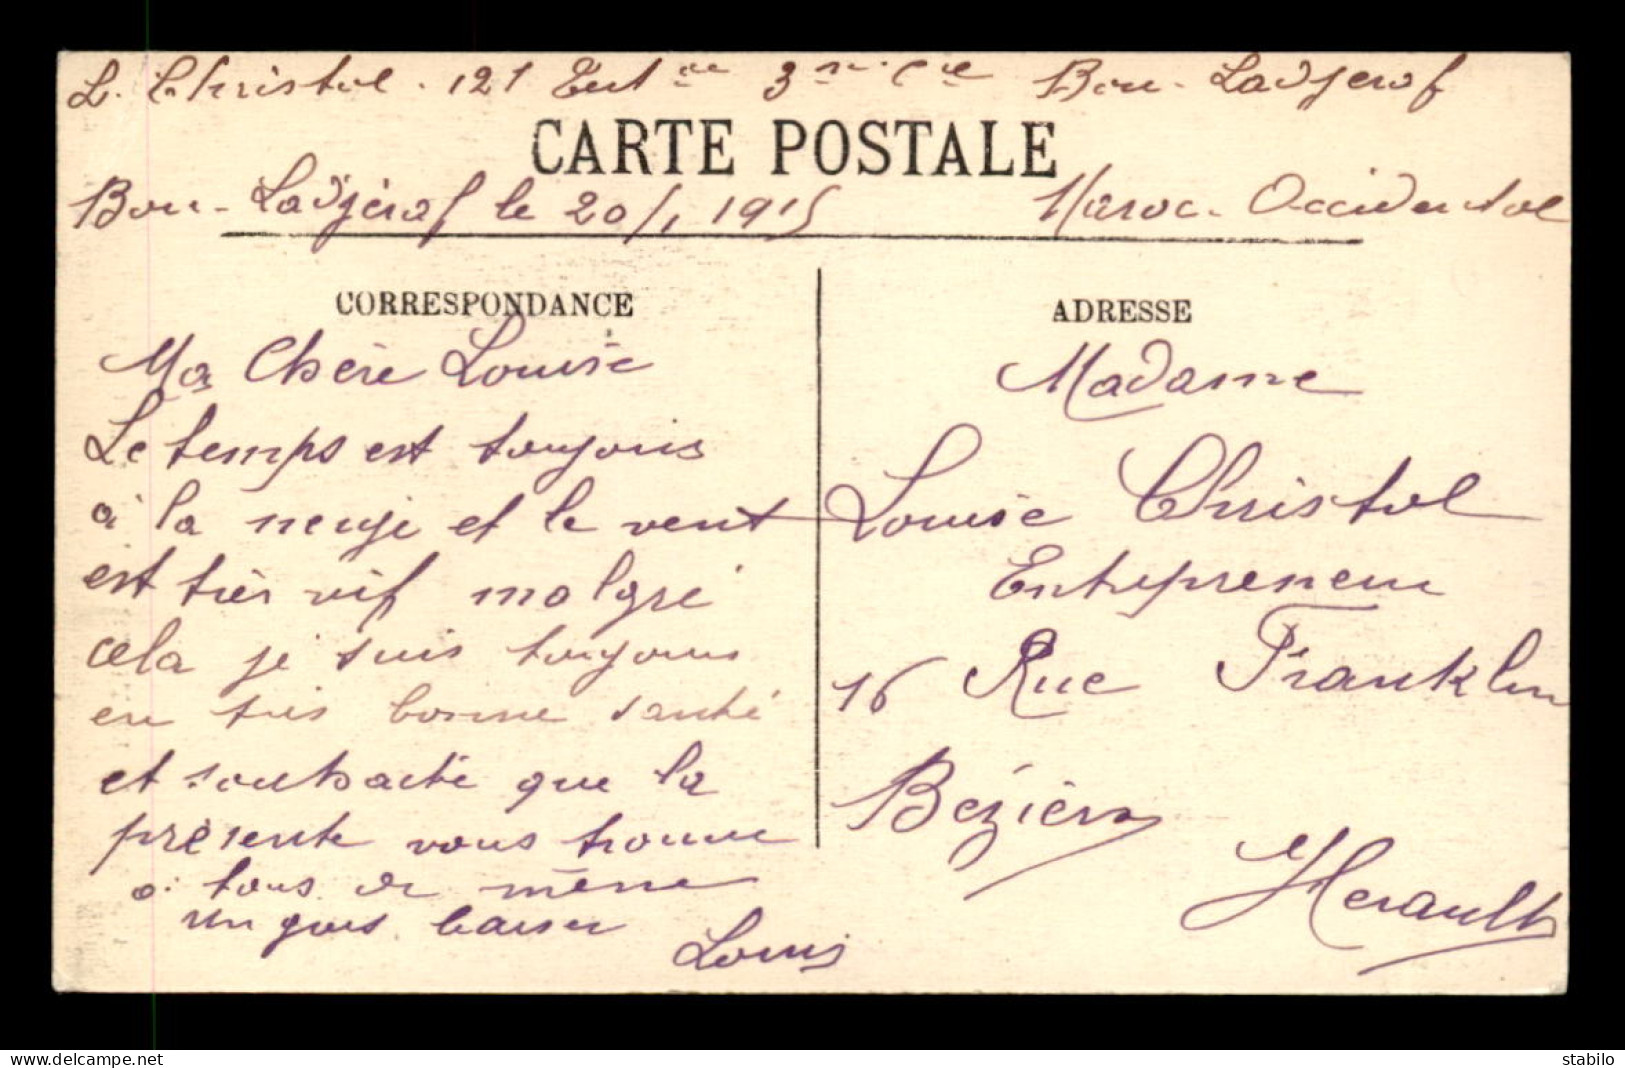 L. Christol. 121 Terr ale 3me Cie Bou-Ladjeraf
CARTE POSTALE
Bou-Ladjéraf le 20/1 1915
Maroc. Occidental
CORRESPONDANCE
Ma Chère Louise
Le temps est toujours
à la neige et le vent
est très vif malgré
cela je suis toujours
en très bonne santé
et souhaite que la
présente vous trouve
à tous de même
un gros baiser
Louis
ADRESSE
Madame
Louise Christol
Entrepreneur
16 Rue Franklin
Béziers
Herault
delcampe.net
stabilo